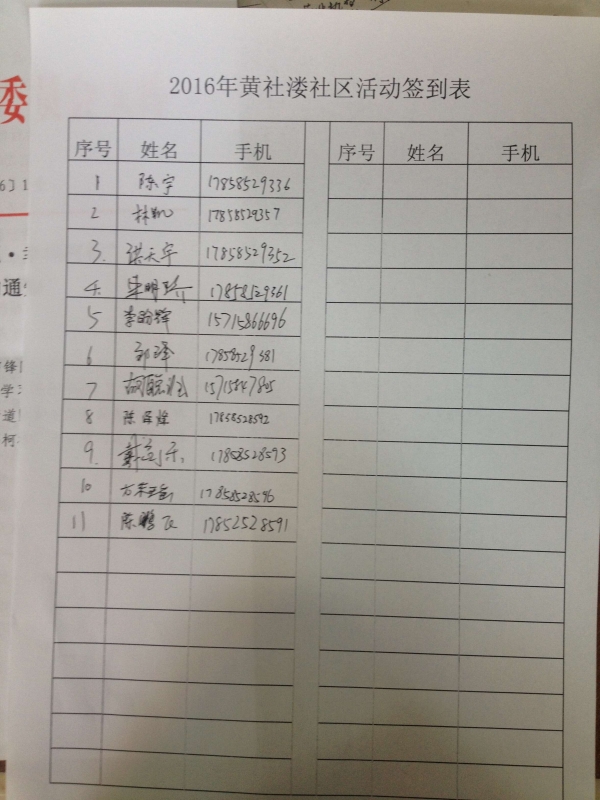 2016年黄社溇社区活动签到表
序号 姓名 手机 序号 姓名 手机
1 陈宇 17858529336
2 林凯 17858529357
3. 洪天宇 17858529352
4. 明 17858529361
5 李盼辉 15715866696
6 邹泽 17858529381
7 15715847805
8 陈泽烽 17858528592
9. 17858528593
10 方 17858528596
11 陈鹏飞 17852528591
委
6〕1
通
锋
学习
道
柯